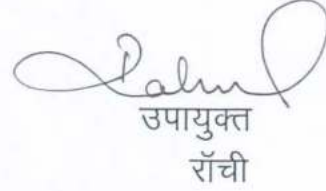 उपायुक्त
राँची